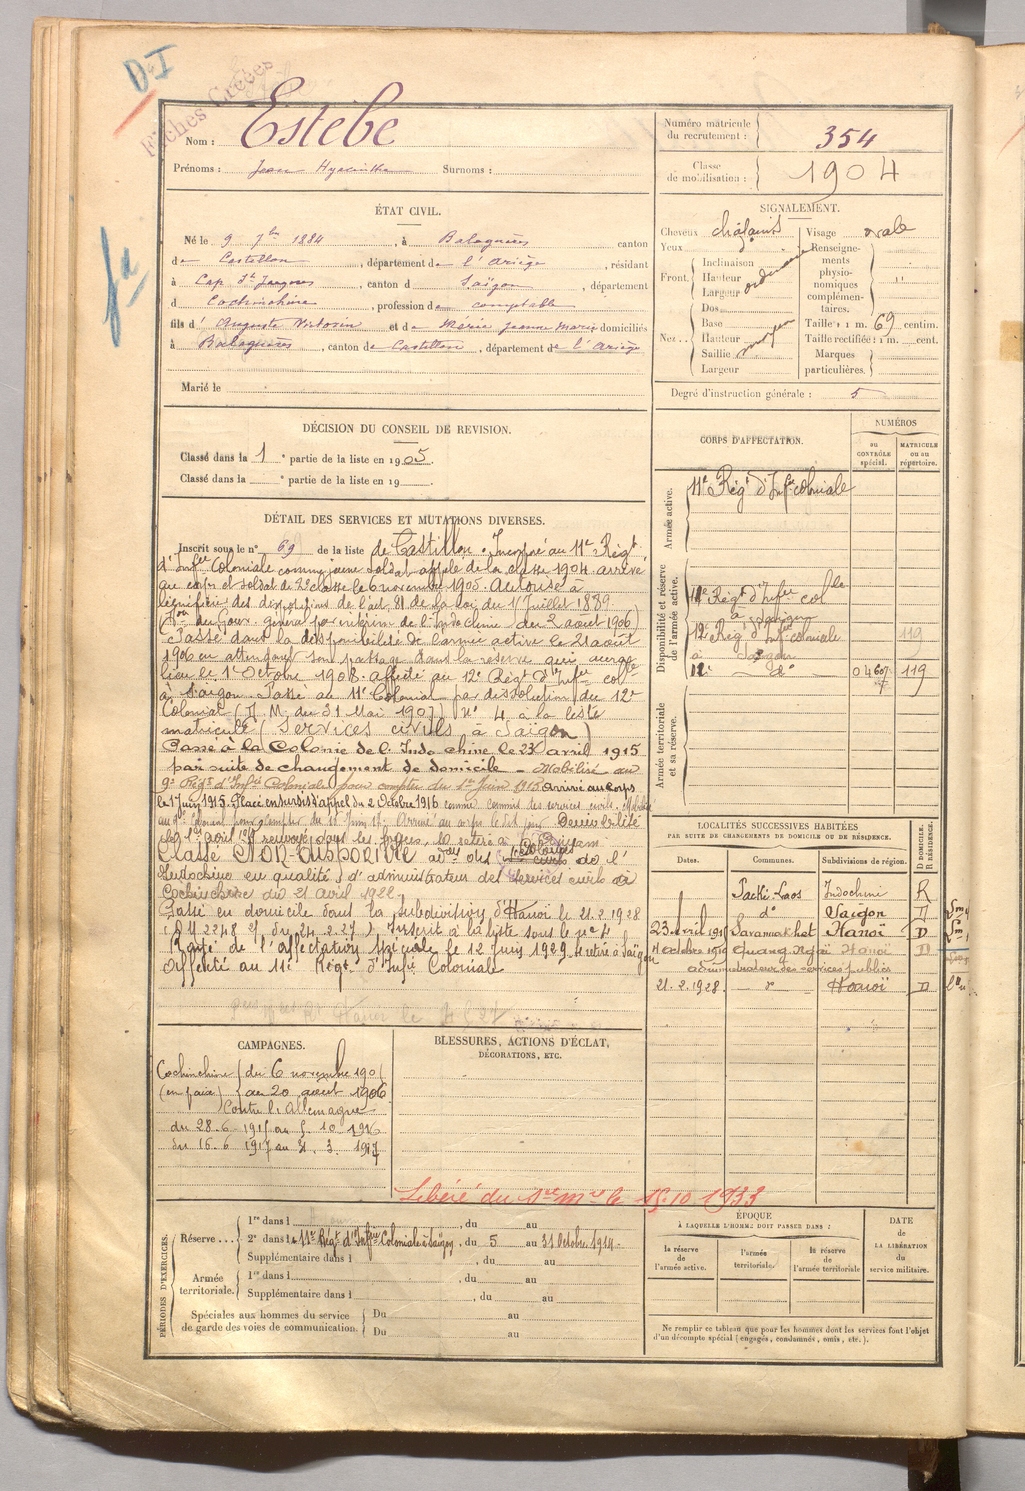 D.I
Fiches Créées
Nom : Estebe
Prénoms : Jean Hyacinthe Surnoms :
Numéro matricule du recrutement : 354
Classe de mobilisation : 1904
ÉTAT CIVIL.
Né le 9 7bre 1884, à Balaguères canton
de Castillon, département de l'Ariège, résidant
à Cap St Jacques, canton d Saïgon, département
d Cochinchine, profession de comptable
fils d' Auguste Victorin et de Mérie Jeanne Marie domiciliés
à Balaguères, canton de Castillon, département de l'Ariège
Marié le
SIGNALEMENT.
Cheveux châtains
Yeux
Front. Inclinaison
Hauteur ordinaire
Largeur
Nez.. Dos
Base
Hauteur moyen
Saillie
Largeur
Visage ovale
Renseignements physionomiques complémentaires. "
Taille : 1 m. 69 centim.
Taille rectifiée : 1 m. cent.
Marques particulières.
Degré d'instruction générale : 5
DÉCISION DU CONSEIL DE REVISION.
Classé dans la 1e partie de la liste en 1905.
Classé dans la e partie de la liste en 19
CORPS D'AFFECTATION.
NUMÉROS
au CONTRÔLE spécial.
MATRICULE ou au répertoire.
Armée active.
11e Régt d'Infie coloniale
Disponibilité et réserve de l'armée active.
Régt d'Infie colle
à Saïgon
12e Régt d'Infie coloniale 119
à Saïgon
12e do 04607 119
Armée territoriale et sa réserve.
DÉTAIL DES SERVICES ET MUTATIONS DIVERSES.
Inscrit sous le n° 69 de la liste de Castillon. Incorporé au 11e Régt
d'Infie Coloniale comme jeune soldat appelé de la classe 1904. arrivé
au corps et soldat de 2e classe le 6 novembre 1905. Autorisé à
bénéficier des dispositions de l'art. 81 de la loi du 15 Juillet 1889.
général par intérim de l'Indochine du 2 août 1906)
Passé dans la disponibilité de l'armée active le 21 août
1906 en attendant son passage dans la réserve qui aura
lieu le 1er Octobre 1908. affecté au 12e Régt d'Infie colle
à Saïgon. Passé au 11e Colonial par dissolution du 12e
Colonial (D.M. du 31 Mai 1907) n° 4 à la liste
matricule (Services civils à Saïgon)
Passé à la Colonie de l'Indo chine le 23 avril 1915
par suite de changement de domicile - Mobilisé au
9e Régt d'Infie Coloniale pour compter du 1er Juin 1915 Arrivé au corps
le 1 Juin 1915. Placé en sursis d'appel du 2 Octobre 1916 comme commis des services civils.
Classé Non-disponible de l'
Indochine en qualité d'administrateur des services civils de
Cochinchine du 21 avril 1922
Passé en domicile dans la subdivision d'Hanoï le 21.2.1928
Inscrit à la liste sous le n° 4
Rayé de l'affectation spéciale le 12 Juin 1929 retiré à Saïgon
Affecté au 11e Régt d'Infie Coloniale
LOCALITÉS SUCCESSIVES HABITÉES
PAR SUITE DE CHANGEMENTS DE DOMICILE OU DE RÉSIDENCE.
Dates. Communes. Subdivisions de région. D DOMICILE. R RÉSIDENCE.
Packé-Laos Indochine R
do Saïgon D
23 avril 1915 Savannakhet Hanoï D
Quang Ngaï Hanoï D
administrateur des services publics
21.2.1928 — do Hanoï D
CAMPAGNES.
Cochinchine (du 6 novembre 1905
(en paix) au 20 août 1906
Contre l'Allemagne
du 28-6-1915 au 5.10.1916
du 16.6 1917 au 31.3.1917
BLESSURES, ACTIONS D'ÉCLAT,
DÉCORATIONS, ETC.
Libéré du Sce Mre le 15.10.1933
PÉRIODES D'EXERCICES.
Réserve... 1re dans l , du au
2e dans le 11e Régt d'Infie Coloniale à Saïgon, du 5 au 31 Octobre 1914.
Supplémentaire dans l , du au
Armée territoriale. 1re dans l , du au
Supplémentaire dans l , du au
Spéciales aux hommes du service de garde des voies de communication. Du au
Du au
ÉPOQUE
À LAQUELLE L'HOMME DOIT PASSER DANS :
la réserve de l'armée active.
l'armée territoriale.
la réserve de l'armée territoriale
DATE de LA LIBÉRATION du service militaire.
Ne remplir ce tableau que pour les hommes dont les services font l'objet
d'un décompte spécial (engagés, condamnés, omis, etc.).